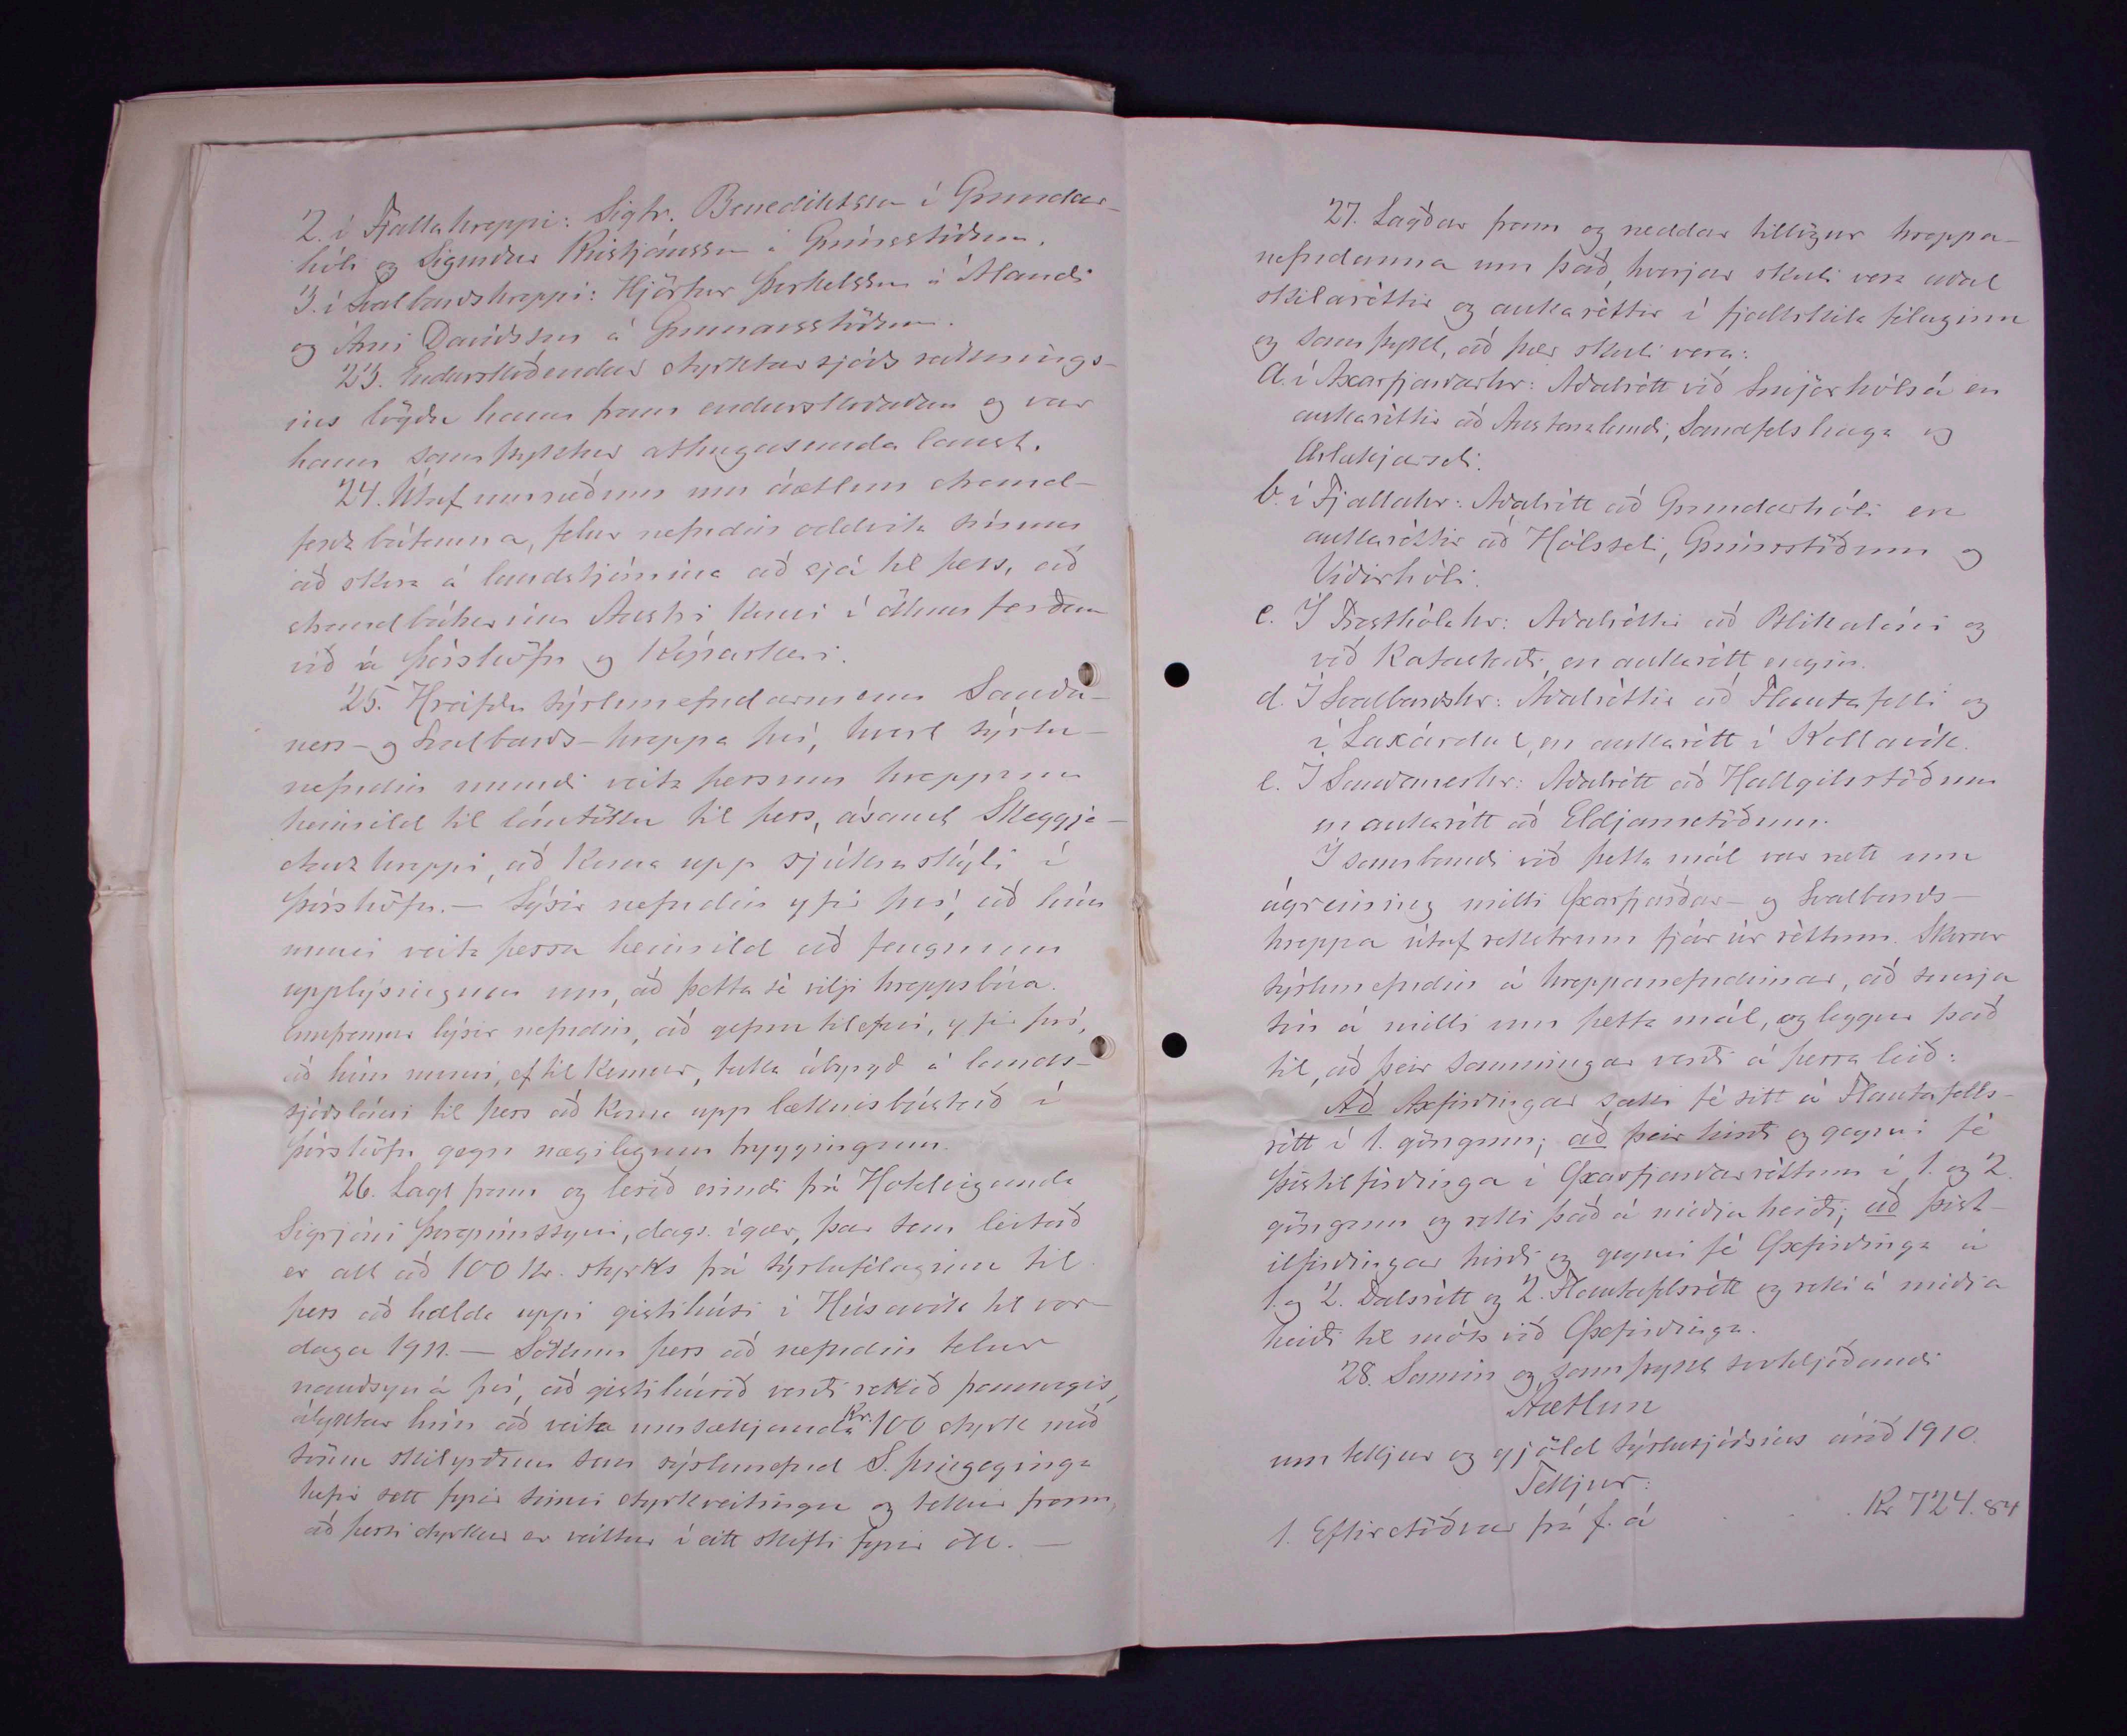 2. í Fjallahreppi: Sigtr. Benediktsson í Grundar-
hóli og Sigurður Kristjánsson á Grímsstöðum.
3. í Svalbarðshreppi: Hjörtur Þorkelsson á Álandi
og Árni Davíðsson á Gunnarsstöðum.
23. Endurskoðendur styrktarsjóðs reiknings-
ins lögðu hann fram endurskoðaðan og var
hann samþyktur athugasemda laust.
24. Útaf umræðum um áætlun strand-
ferða bátanna, felur nefndin oddvita sínum
að skora á landstjórnina að sjá til þess, að
strandbáturinn Austri komi í öllum ferðum
við á Þórshöfn og Kópaskeri.
25. Hreifðu sýslunefndarmenn Sauða-
ness- og Svalbarðs-hreppa því, hvort sýslu-
nefndin mundi veita þessum hreppum
heimild til lántöku til þess, ásamt Skeggja-
staðahreppi, að koma upp sjúkraskýli í
Þórshöfn. — Lýsir nefndin yfir því, að hún
muni veita þessa heimild að fengnum
upplýsingum um, að þetta sé vilji hreppsbúa.
Ennfremur lýsir nefndin, að gefnu tilefni, yfir því,
að hún muni, ef til kemur, taka ábyrgð á lands-
sjóðsláni til þess að koma upp læknisbústað í
Þórshöfn gegn nægilegum tryggingum.
26. Lagt fram og lesið erindi frá Hoteleiganda
Sigrjóni Þorgrímssyni, dags. ígær, þar sem leitað
er að 100 kr. styrks frá sýslufélaginu til
þess að halda uppi gistihúsi í Húsavík til vor-
daga 1911. — Sökum þess að nefndin telur
nauðsyn á því, að gistihúsið verði rekið framvegis,
ályktar hún að veita umsækjanda Kr. 100 styrk með
sömu skilyrðum sem sýslunefnd S. þingeyinga
hefir sett fyrir sinni styrkveitingu og tekur fram,
að þessi styrkur er veittur í eitt skifti fyrir öll. —
27. Lagðar fram og ræddar tillögur hreppa-
nefndanna um það, hverjar skuli vera aðal
skilaréttir og aukaréttir í fjallskila félaginu
og samþykt, að þær skuli vera:
a. í Axarfjarðarhr: Aðalrétt við Smjörhólsá en
aukaréttir að Austaralandi, Sandfelshaga og
Ærlækjarseli.
b. í Fjallahr: Aðalrétt að Grundarhóli en
aukaréttir að Hólsseli, Grímsstöðum og
Víðirhóli.
c. Í Presthólahr: Aðalréttir að Blikalóni og
við Katastaði, en aukarétt engin.
d. Í Svalbarðshr: Aðalréttir að Flautafelli og
í Laxárdal, en aukarétt í Kollavík.
e. Í Sauðaneshr: Aðalrétt að Hallgilsstöðum
en aukarétt að Eldjarnsstöðum.
Í sambandi við þetta mál var rætt um
ágreining milli Øxarfjarðar- og Svalbarðs-
hreppa útaf rekstrum fjár úr réttum. Skorar
sýslunefndin á hreppanefndirnar, að semja
sín á milli um þetta mál, og leggur það
til, að þeir samningar verði á þessa leið:
Að Axfirðingar sæki fé sitt á Flautafells-
rétt í 1. göngum; að þeir hirði og geymi fé
Þistilfirðinga í Øxarfjarðarréttum í 1. og 2.
göngum og reki það á miðja heiði; að Þist-
ilfirðingar hirði og geymi fé Øxfirðinga á
1. og 2. Dalsrétt og 2. Flautafelsrétt og reki á miðja
heiði til móts við Øxfirðinga.
28. Samin og samþykt svohljóðandi
Áætlun
um tekjur og gjöld sýslusjóðsins árið 1910.
Tekjur:
1. Eftirstöðvar frá f. á . . . Kr 724.84